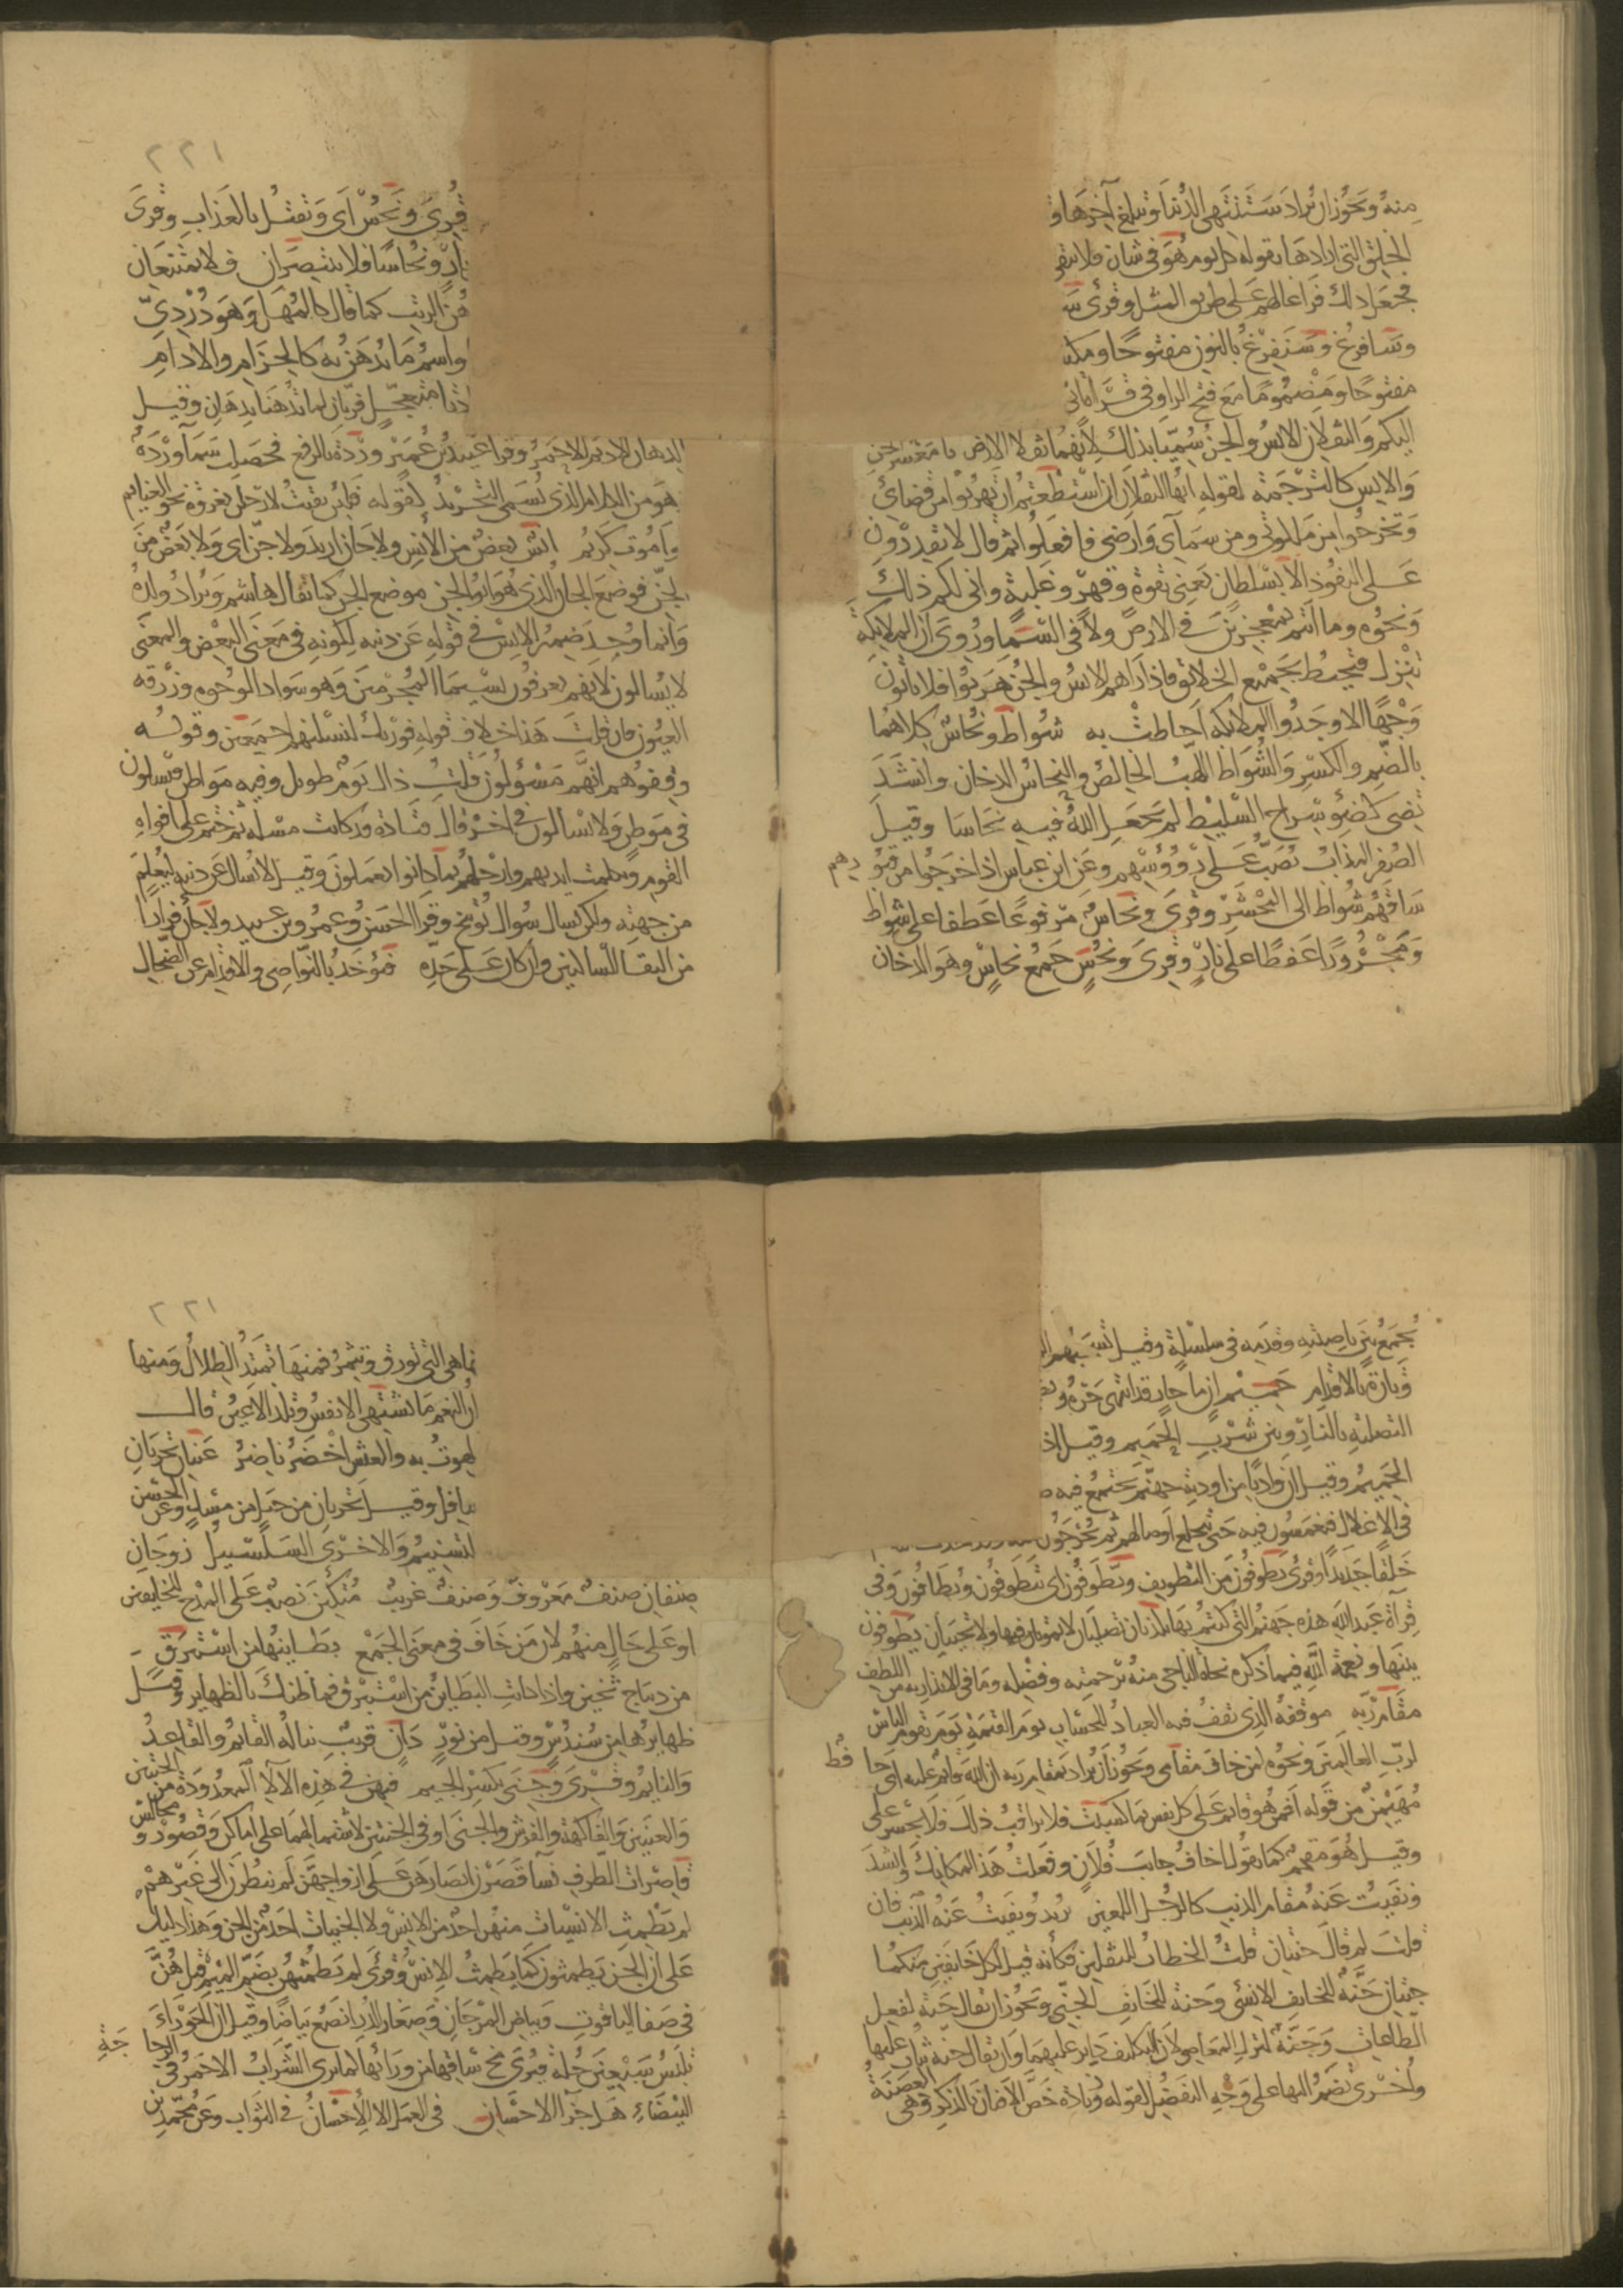 منه ويجوز ان يراد ستنتهى الدنيا وتبلغ آخرها و
الخلق التى ارادها بقوله كل يوم هو فى شان فلا يبقى
فجعل ذلك فراغا لهم على طريق المثل وقرئ سـ
وسافرغ وسنفرغ بالنون مفتوحا ومكسـ
مفتوحا ومضموما مع فتح الراء وفى قراة ابى
اليكم والثقلان الانس والجن سميا بذلك لانهما ثقلا الارض يا معشر الجن
والانس كالترجمة لقوله ايها الثقلان ان استطعتم ان تهربوا من قضائى
وتخرجوا من ملكوتى ومن سمآى وارضى فافعلوا ثم قال لا تقدرون
على النفوذ الا بسلطان يعنى بقوة وقهر وغلبة وانى لكم ذلك
ونحوه وما انتم بمعجزين فى الارض ولا فى السما وروى ان الملايكة
تنزل فتحيط بجميع الخلائق فاذا راهم الانس والجن هربوا فلا ياتون
وجها الا وجدوا الملايكه احاطت به شواظ ونحاس كلاهما
بالضم والكسر والشواظ اللهب الخالص والنحاس الدخان وانشد
تضى كضوء سراج السليط لم يجعل الله فيه نحاسا وقيل
الصفر المذاب يصب على رؤوسهم وعن ابن عباس اذا خرجوا من قبو رهم
ساقهم شواظ الى المحشر وقرى ونحاس مرفوعا عطفا على شواظ
ومجرورا عطفا على نار وقرى ونحس جمع نحاس وهو الدخان
٢٢١
قرى ونحس اى ونقتل بالعذاب وقرى
نار ونحاسا فلا تنتصران فلا تمتنعان
هن الزيت كما قال كالمهل وهو دردى
واسم ما يدهن به كالحزام والادام
قربان لما تدهنا بدهان وقيل
الدهان الاديم الاحمر وقرا عبيد بن عمير وردة بالرفع فحصلت سمآ وردة
هو من الكلام الذى يسمى التجريد لقوله فلئن بقيت لارحلن بغزوة نحو الغنايم
او اموت كريم انس بعض من الانس ولا جان اريد ولا جن اى ولا بعض من
الجن فوضع الجان الذى هو ابو الجن موضع الجن كما يقال هاشم ويراد ولده
وانما وحد ضمير الانس فى قوله عن ذنبه لكونه فى معنى البعض والمعنى
لا يسالون لانهم يعرفون بسيما المجرمين وهو سواد الوجوه وزرقة
العيون فان قلت هذا خلاف قوله فوربك لنسئلنهم اجمعين وقوله
وقفوهم انهم مسؤلون قلت ذلك يوم طويل وفيه مواطن فيسالون
فى موطن ولا يسالون فى اخر قال قتادة قد كانت مسلة ثم ختم على افواه
القوم وتكلمت ايديهم وارجلهم بما كانوا يعملون وقيل لا يسال عن ذنبه ليعلم
من جهته ولكن يسال سؤال توبيخ وقرا الحسن وعمرو بن عبيد ولا جان فرارا
من التقا الساكنين وان كان على حده فيؤخذ بالنواصى والاقدام عن الضحاك
يجمع بين ناصيته وقدمه فى سلسلة وقيل تسحبهم الـ
وتارة بالاقدام حميم ان ما حار قد انتهى حره و
التصلية بالنار وبين شرب الحميم وقيل اذ
الحميم وقيل ان واديا من اودية جهنم يجتمع فيه صـ
فى الاغلال فيغمسون فيه حتى تنخلع اوصالهم ثم يخرجون
خلقا جديدا وقرئ يطوفون من التطويف ويطوفون اى يتطوفون ويطافون وفى
قراة عبد الله هذه جهنم التى كنتم بها تكذبان تصليان لا تموتان فيها ولا تحييان يطوفون
بينها ونعمة الله فيما ذكره نجاة الناجى منه برحمته وفضله وما فى الانذار به من اللطف
مقام ربه موقفه الذى يقف فيه العباد للحساب يوم القيمة يوم يقوم الناس
لرب العالمين ونحوه لمن خاف مقامى ويجوز ان يراد بمقام ربه ان الله قايم عليه اى حا فظ
مهيمن من قوله افمن هو قايم على كل نفس بما كسبت فلا يراقب ذلك فلا يجسر على
وقيل هو مقحم كما يقول اخاف جانب فلان وفعلت هذا لمكانك وانشد
ونفيت عنه مقام الذيب كالرجل اللعين يريد ونفيت عنه الذيب فان
قلت لم قال جنتان قلت الخطاب للثقلين فكأنه قيل لكل خائفين منكما
جنتان جنة للخايف الانسى وجنة للخايف الجنى ويجوز ان يقال جنة لفعل
الطاعات وجنة لترك المعاصى لان التكليف داير عليهما وان يقال جنة يثاب عليها
واخرى تضم اليها على وجه التفضل لقوله وزيادة خص الافنان بالذكر وهى الغصنة
٢٢١
نها هى التى تورق وتثمر فمنها تمتد الظلال ومنها
ان النعم ما تشتهى الانفس وتلذ الاعين قال
لهوت به والعيش اخضر ناضر عينان تجريان
سافل وقيل تجريان من جبل من مسك وعن الحسن
التسنيم والاخرى السلسبيل زوجان
صنفان صنف معروف وصنف غريب متكئين نصب على المدح للخايفين
او على حال منهم لان من خاف فى معنى الجمع بطاينها من استبرق
من ديباج ثخين واذا كانت البطاين من استبرق فما ظنك بالظهاير وقيل
ظهايرها من سندس وقيل من نور دان قريب يناله القايم والقاعد
والنايم وقرى وجنى بكسر الجيم فيهن فى هذه الآلآ المعدودة من الجنتين
والعينين والفاكهة والفرش والجنى او فى الجنتين لاشتمالهما على اماكن وقصور و مجالس
قاصرات الطرف نسآ قصرن ابصارهن على ازواجهن لم ينظرن الى غيرهم
لم يطمث الانسيات منهن احد من الانس ولا الجنيات احد من الجن وهذا دليل
على ان الجن يطمثون كما يطمث الانس وقرئ لم يطمثهن بضم الميم قيل هن
فى صفا الياقوت وبياض المرجان وصغار الدر انصع بياضا وقيل ان الحوراء
تلبس سبعين حلة فيرى مخ ساقها من ورائها كما يرى الشراب الاحمر فى الزجا جة
البيضاء هل جزآ الاحسان فى العمل الا الاحسان فى الثواب وعن محمد بن